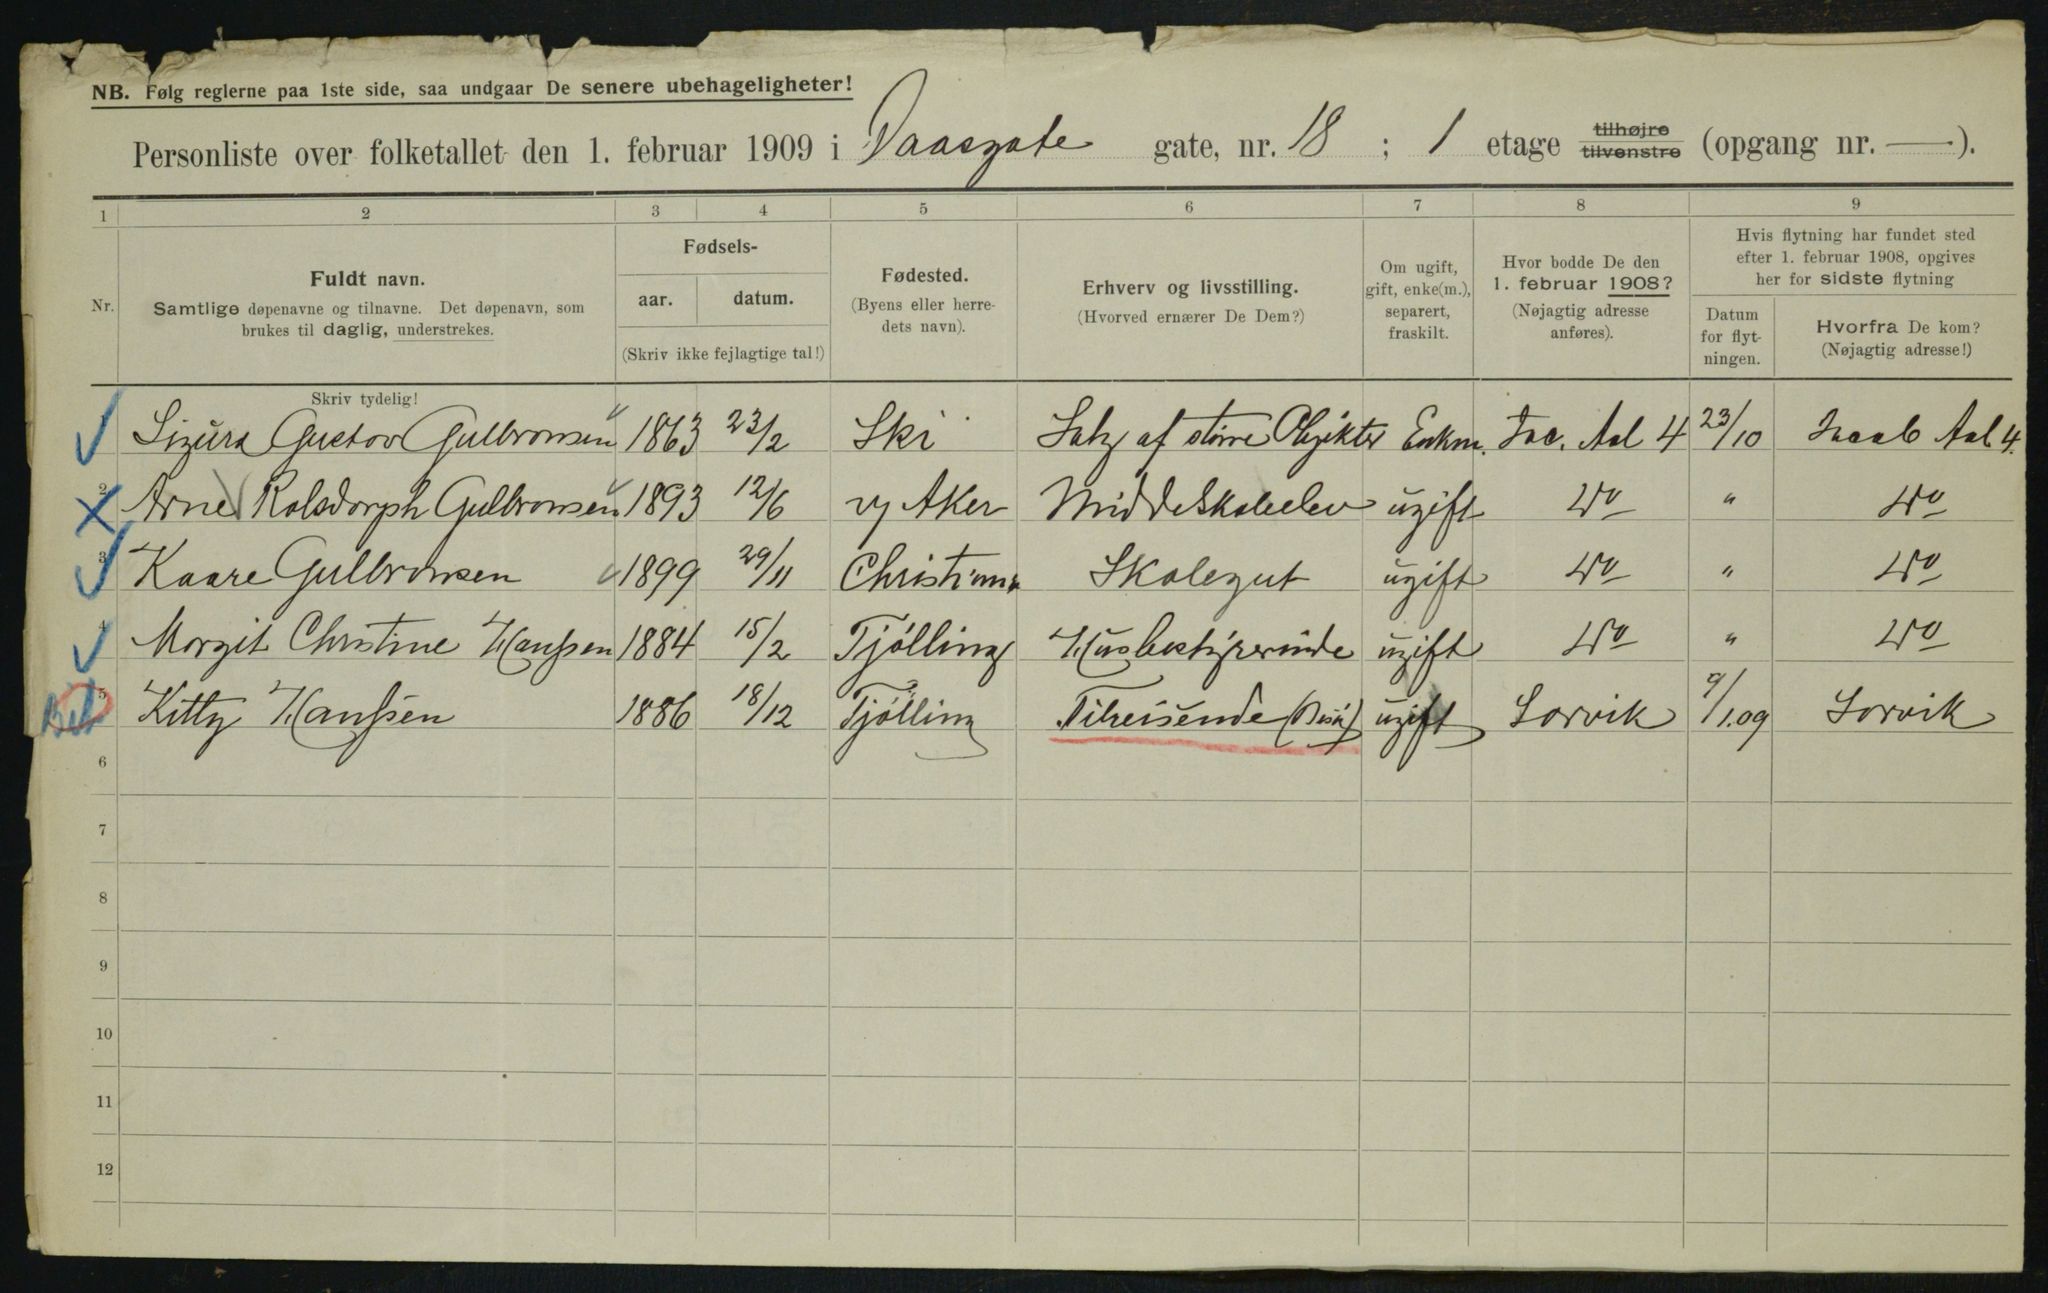 NB. Følg reglerne paa 1ste side, saa undgaar De senere ubehageligheter!
Personliste over folketallet den 1. februar 1909 i Daasgate gate, nr. 18 ; 1 etage tilhøjre tilvenstre (opgang nr. — ).
1 2 3 4 5 6 7 8 9
Nr.
Fuldt navn.
Samtlige døpenavne og tilnavne. Det døpenavn, som
brukes til daglig, understrekes.
Fødsels-
aar. datum.
(Skriv ikke fejlagtige tal!)
Fødested.
(Byens eller herre-
dets navn).
Erhverv og livsstilling.
(Hvorved ernærer De Dem?)
Om ugift,
gift, enke(m.),
separert,
fraskilt.
Hvor bodde De den
1. februar 1908?
(Nøjagtig adresse
anføres).
Hvis flytning har fundet sted
efter 1. februar 1908, opgives
her for sidste flytning
Datum
for flyt-
ningen.
Hvorfra De kom?
(Nøjagtig adresse!)
Skriv tydelig!
Sigurd Gustav Gulbransen 1863 23/2 Ski Salg af större Objekter Enkm. Jac. Aal 4 23/10 Jacob Aal 4.
2 Arne Rolsdorph Gulbransen 1893 12/6 v/ Aker Middelskoleelev ugift Do " Do
3 Kaare Gulbransen 1899 29/11 Christiania Skolegut ugift Do " Do
4 Margit Christine Hanssen 1884 15/2 Tjølling Husbestyrerinde ugift Do " Do
5 Kitty Hanssen 1886 18/12 Tjølling Tilreisende (Besøg) ugift Larvik 9/1.09 Larvik
6
7
8
9
10
11
12